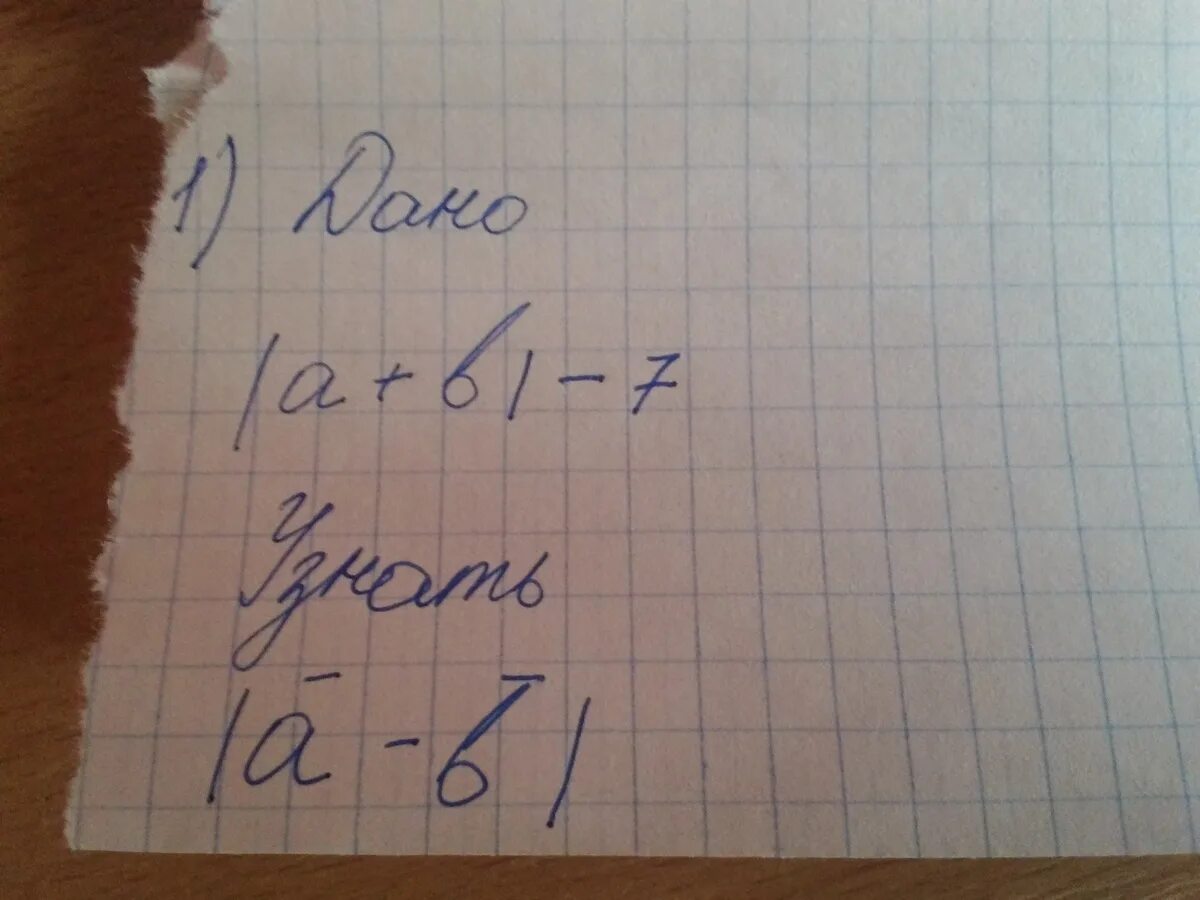 1) Дано
|a + b| - 7
Узнать
|a̅ - b̅|